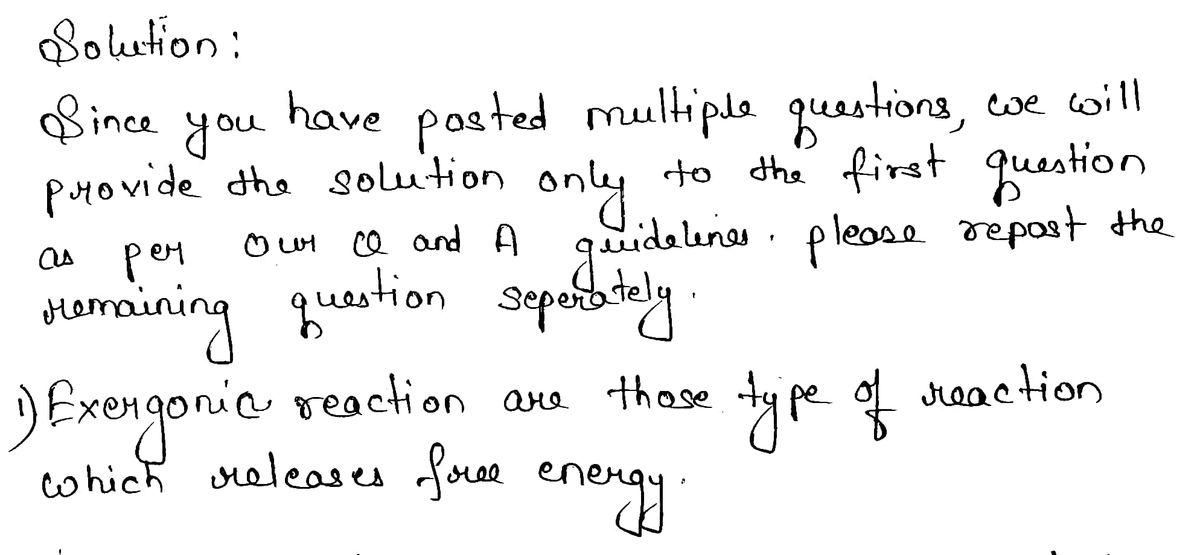 Solution:
Since you have posted multiple questions, we will
provide the solution only to the first question
as per our Q and A guidelines. please repost the
remaining question seperately.
1) Exergonic reaction are those type of reaction
which releases free energy.